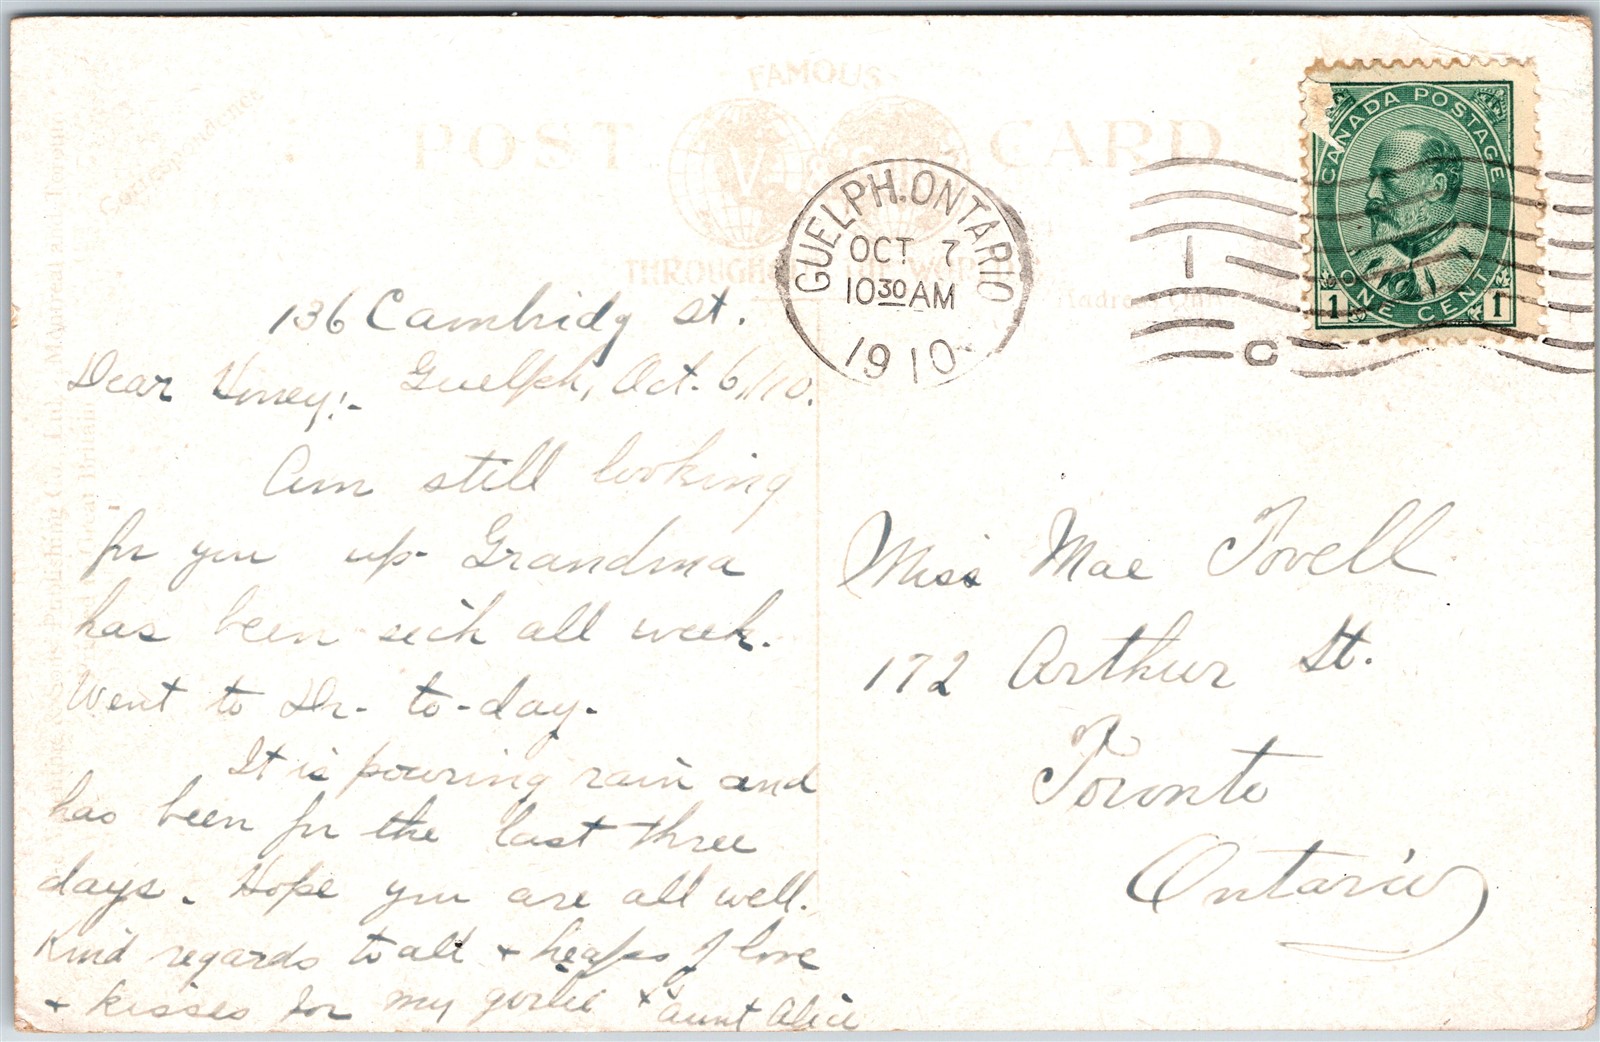 Correspondence
FAMOUS
POST CARD
V
THROUGHOUT THE WORLD
GUELPH. ONTARIO
OCT 7
10 30 AM
1910
1
C
CANADA POSTAGE
ONE CENT
1 1
136 Cambridg St.
Guelph, Oct. 6/10.
Dear Honey!-
Am still looking
for you up. Grandma
has been sick all week.
Went to Dr. to-day.
It is pouring rain and
has been for the last three
days. Hope you are all well.
Kind regards to all + heaps of love
+ kisses for my girlie "Aunt Alice
Miss Mae Tovell
172 Arthur St.
Toronto
Ontario